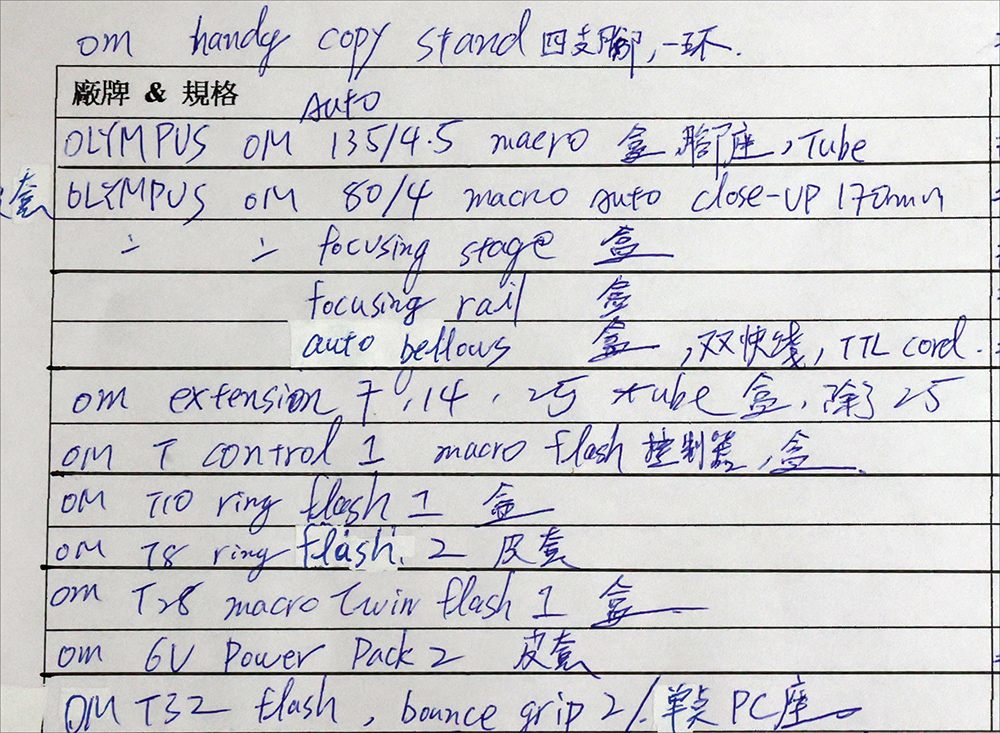 om handy copy stand 四支腳,一环.
廠牌 & 規格
Auto
OLYMPUS OM 135/4.5 macro 盒,腳座,Tube
套 OLYMPUS OM 80/4 macro auto close-up 170mm
〃 〃 focusing stage 盒
focusing rail 盒
auto bellows 盒,双快线,TTL cord.
om extension 7,14,25 tube 盒,除了25
OM T control 1 macro flash 控制器,盒
OM T10 ring flash 1 盒
OM T8 ring flash. 2 皮套
om T28 macro Twin flash 1 盒
om 6V Power Pack 2 皮套
OM T32 flash, bounce grip 2/.單点 PC座。